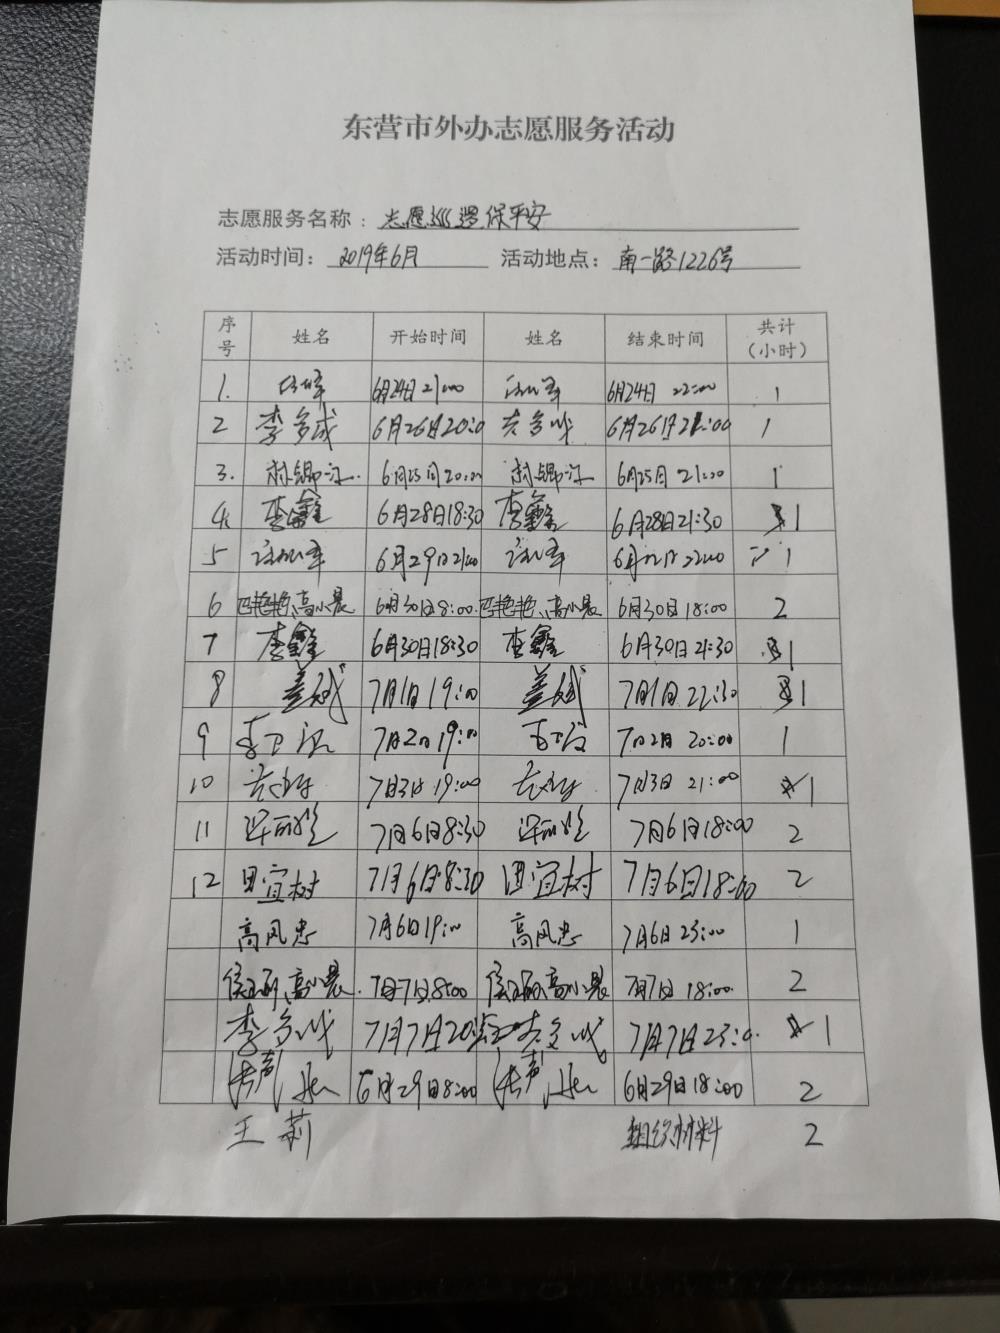 东营市外办志愿服务活动
志愿服务名称：志愿巡逻保平安
活动时间：2019年6月 活动地点：南一路1226号
序号 姓名 开始时间 姓名 结束时间 共计（小时）
1. 6月24日21:00 6月24日 22:00 1
2 李多成 6月26日20:0 李多成 6月26日21:00 1
3. 6月25日20:00 6月25日 21:00 1
4. 李鑫 6月28日18:30 李鑫 6月28日21:30 1
5 6月29日21:00 22:00 1
6 巴艳艳、高小晨 6月30日8:00. 巴艳艳、高小晨 6月30日18:00 2
7 李鑫 6月30日18:30 李鑫 6月30日21:30 1
8 姜斌 7月1日19:00 姜斌 7月1日22:30 1
9 7月2日19:00 7月2日20:00 1
10 7月3日19:00 7月3日 21:00 1
11 7月6日8:30 7月6日18:00 2
12 田宜树 7月6日8:30 田宜树 7月6日18:00 2
高风忠 7月6日19:00 高风忠 7月6日23:00 1
高小晨. 7月7日8:00 高小晨 7月7日 18:00. 2
李多成 7月7日20: 李多成 7月7日23:0. 1
6月29日8:00 6月29日18:00 2
王莉 组织材料 2